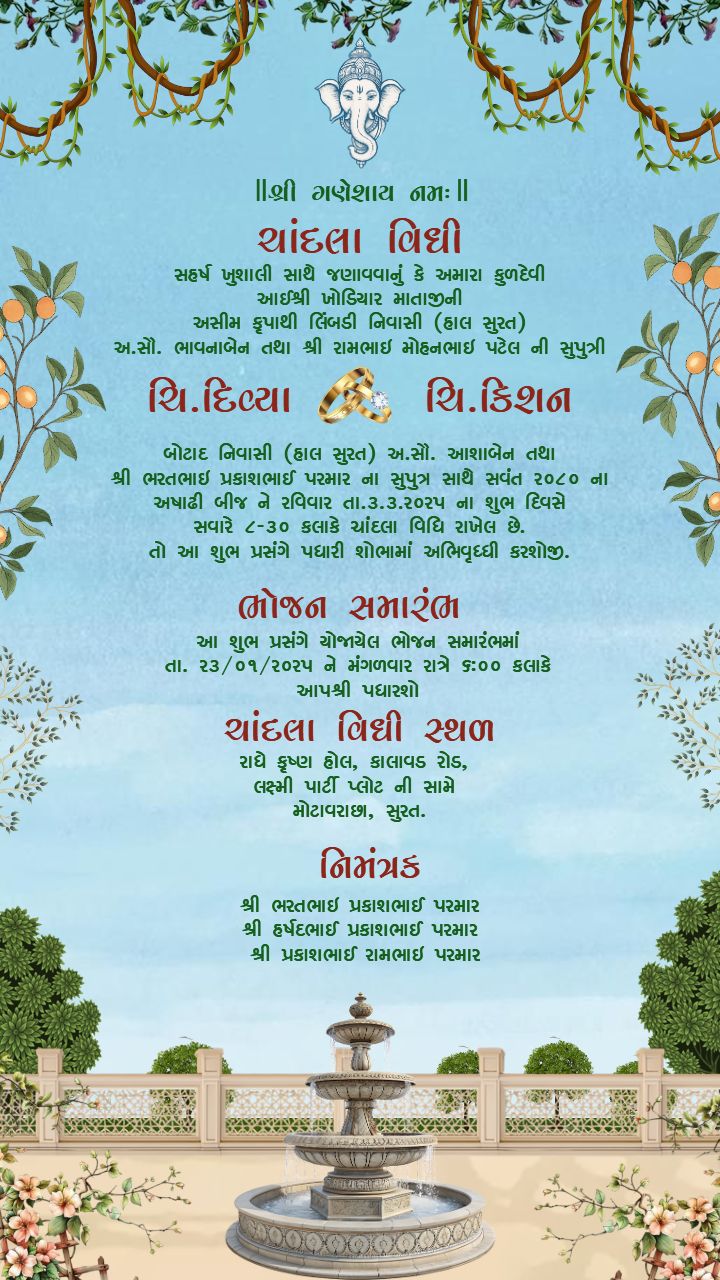 ||શ્રી ગણેશાય નમઃ||
ચાંદલા વિધી
સહર્ષ ખુશાલી સાથે જણાવવાનું કે અમારા કુળદેવી
આઈશ્રી ખોડિયાર માતાજીની
અસીમ કૃપાથી લિંબડી નિવાસી (હાલ સુરત)
અ.સૌ. ભાવનાબેન તથા શ્રી રામભાઇ મોહનભાઇ પટેલ ની સુપુત્રી
ચિ.દિવ્યા ચિ.કિશન
બોટાદ નિવાસી (હાલ સુરત) અ.સૌ. આશાબેન તથા
શ્રી ભરતભાઇ પ્રકાશભાઈ પરમાર ના સુપુત્ર સાથે સવંત ૨૦૮૦ ના
અષાઢી બીજ ને રવિવાર તા.૩.૩.૨૦૨૫ ના શુભ દિવસે
સવારે ૮-૩૦ કલાકે ચાંદલા વિધિ રાખેલ છે.
તો આ શુભ પ્રસંગે પધારી શોભામાં અભિવૃધ્ધી કરશોજી.
ભોજન સમારંભ
આ શુભ પ્રસંગે યોજાયેલ ભોજન સમારંભમાં
તા. ૨૩/૦૧/૨૦૨૫ ને મંગળવાર રાત્રે ૬:૦૦ કલાકે
આપશ્રી પધારશો
ચાંદલા વિધી સ્થળ
રાધે કૃષ્ણ હોલ, કાલાવડ રોડ,
લક્ષ્મી પાર્ટી પ્લોટ ની સામે
મોટાવરાછા, સુરત.
નિમંત્રક
શ્રી ભરતભાઇ પ્રકાશભાઈ પરમાર
શ્રી હર્ષદભાઈ પ્રકાશભાઈ પરમાર
શ્રી પ્રકાશભાઈ રામભાઇ પરમાર